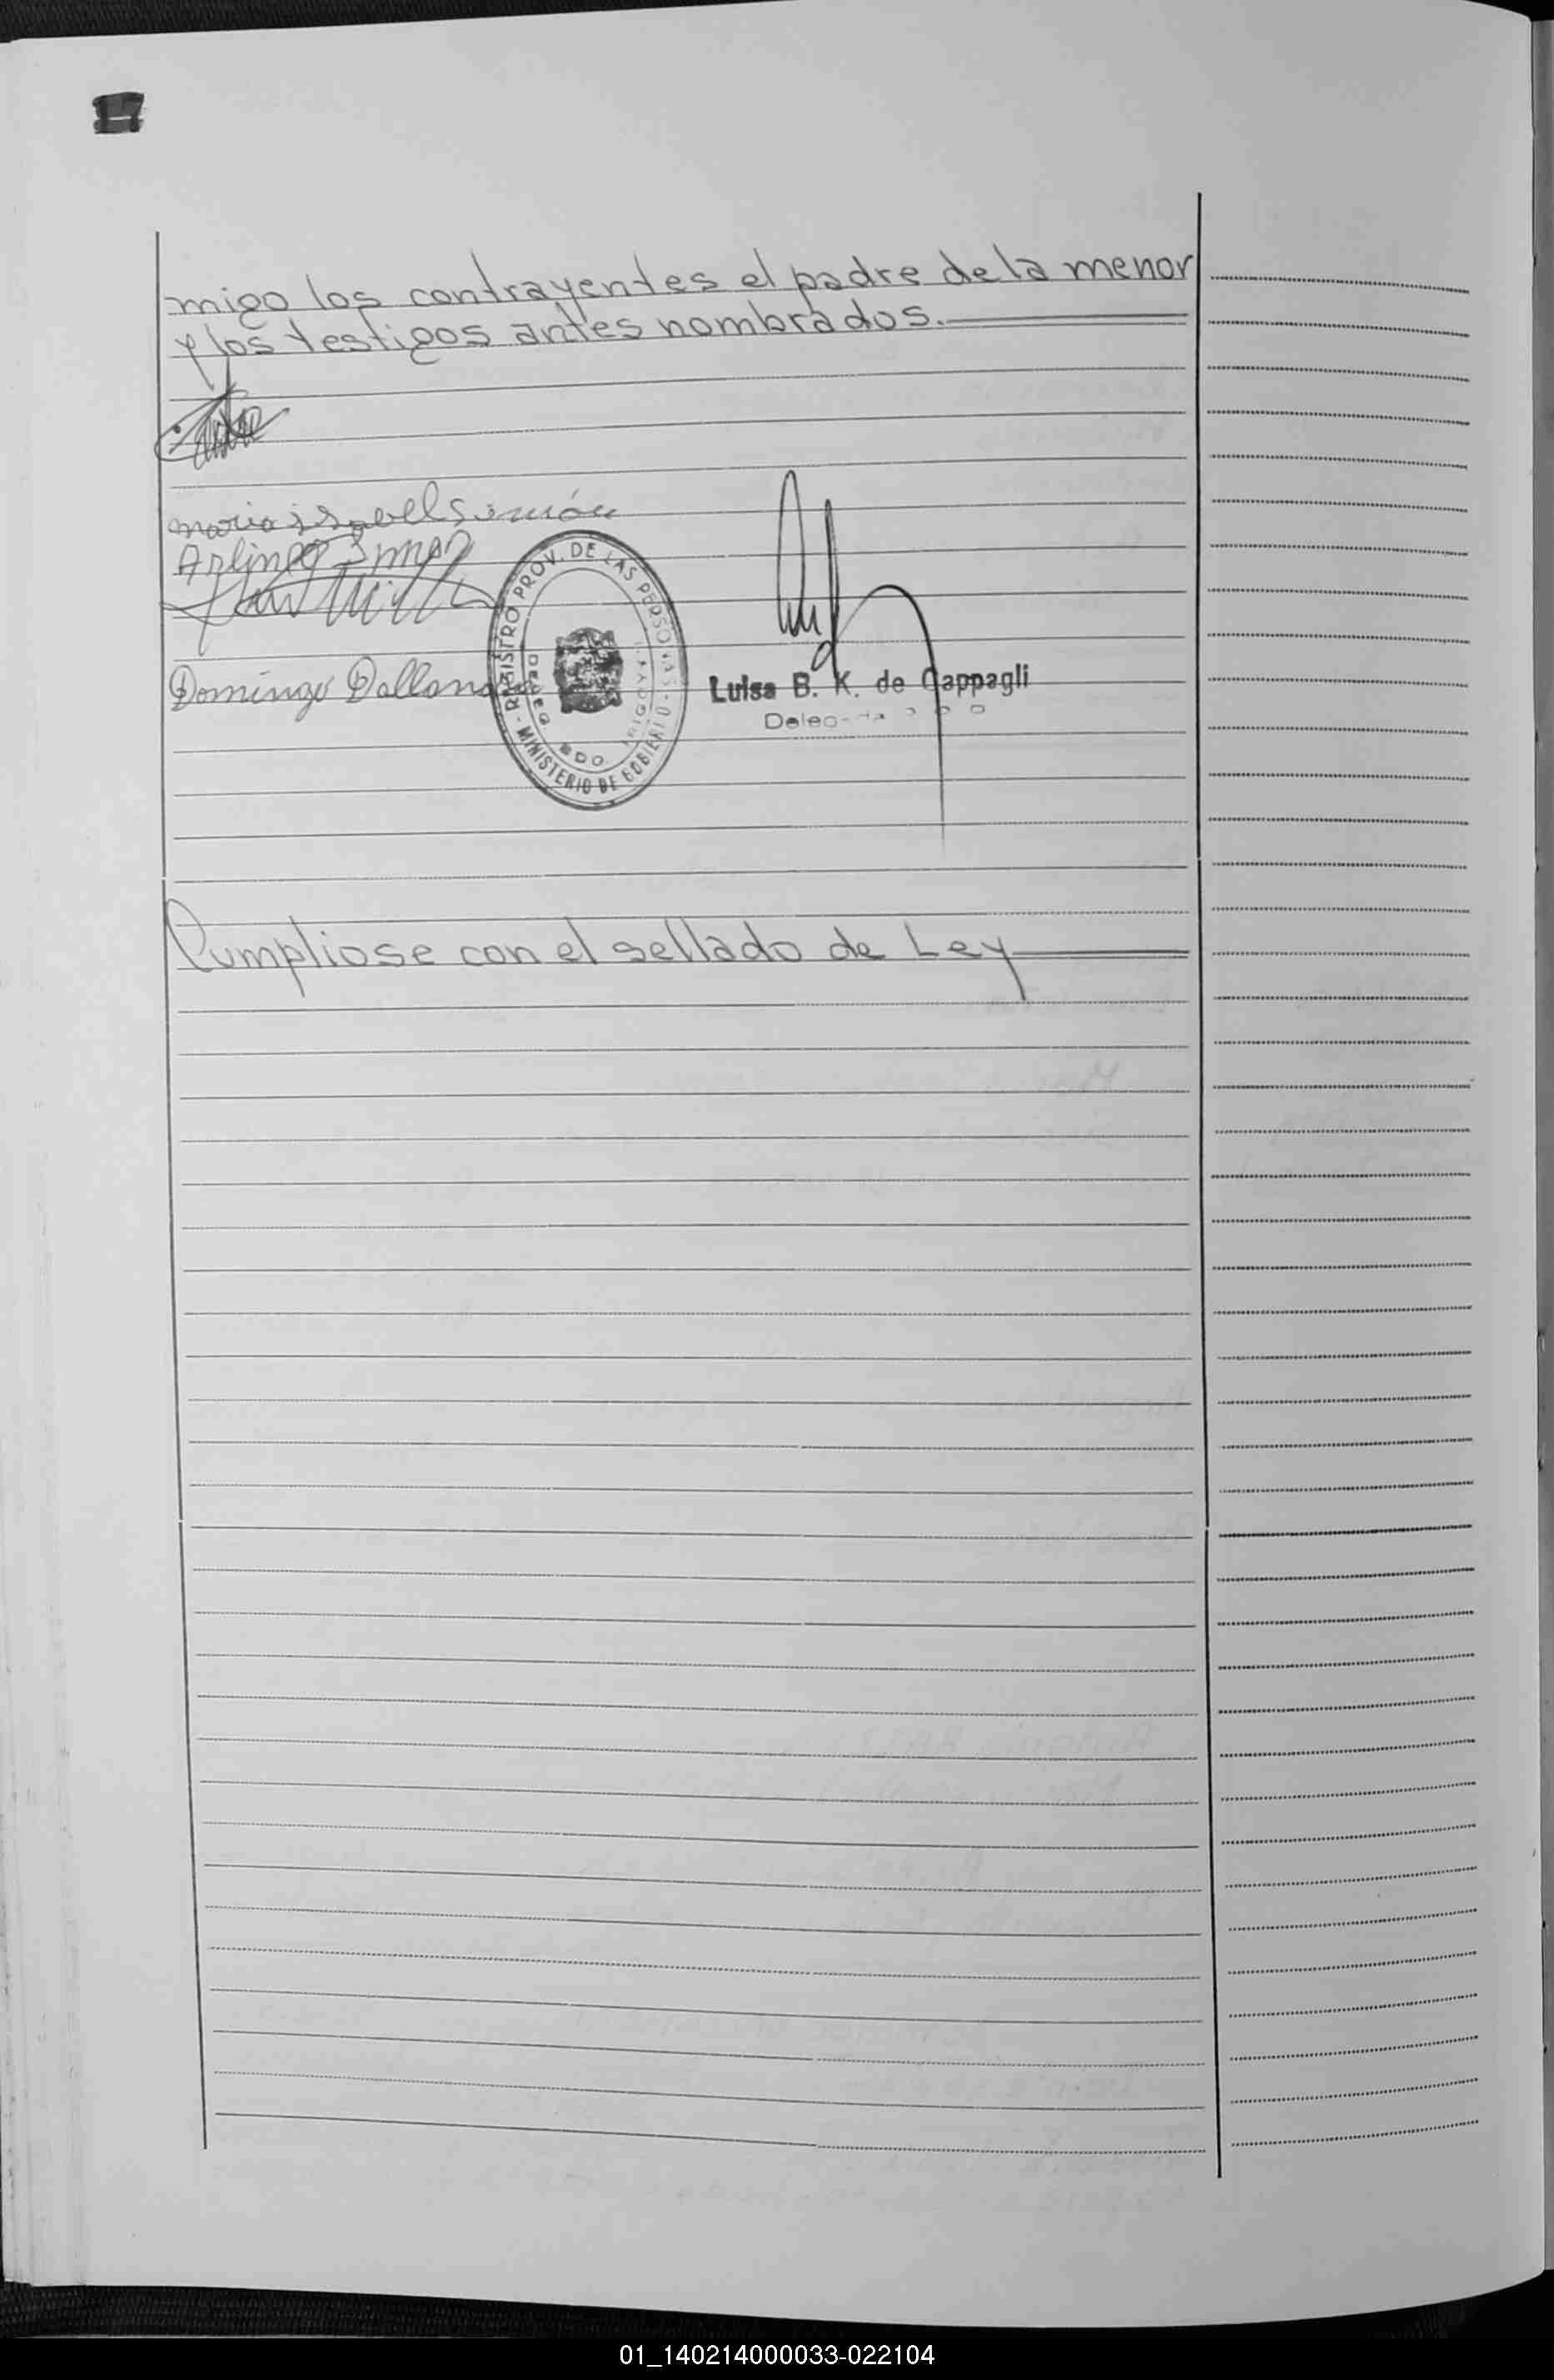 migo los contrayentes el padre de la menor
y los testigos antes nombrados.
maria isabel Simón
Domingo
REGISTRO PROV. DE LAS PERSONAS - MINISTERIO DE GOBIERNO
Luisa B. K. de Cappagli
Cumpliose con el sellado de Ley
01_140214000033-022104